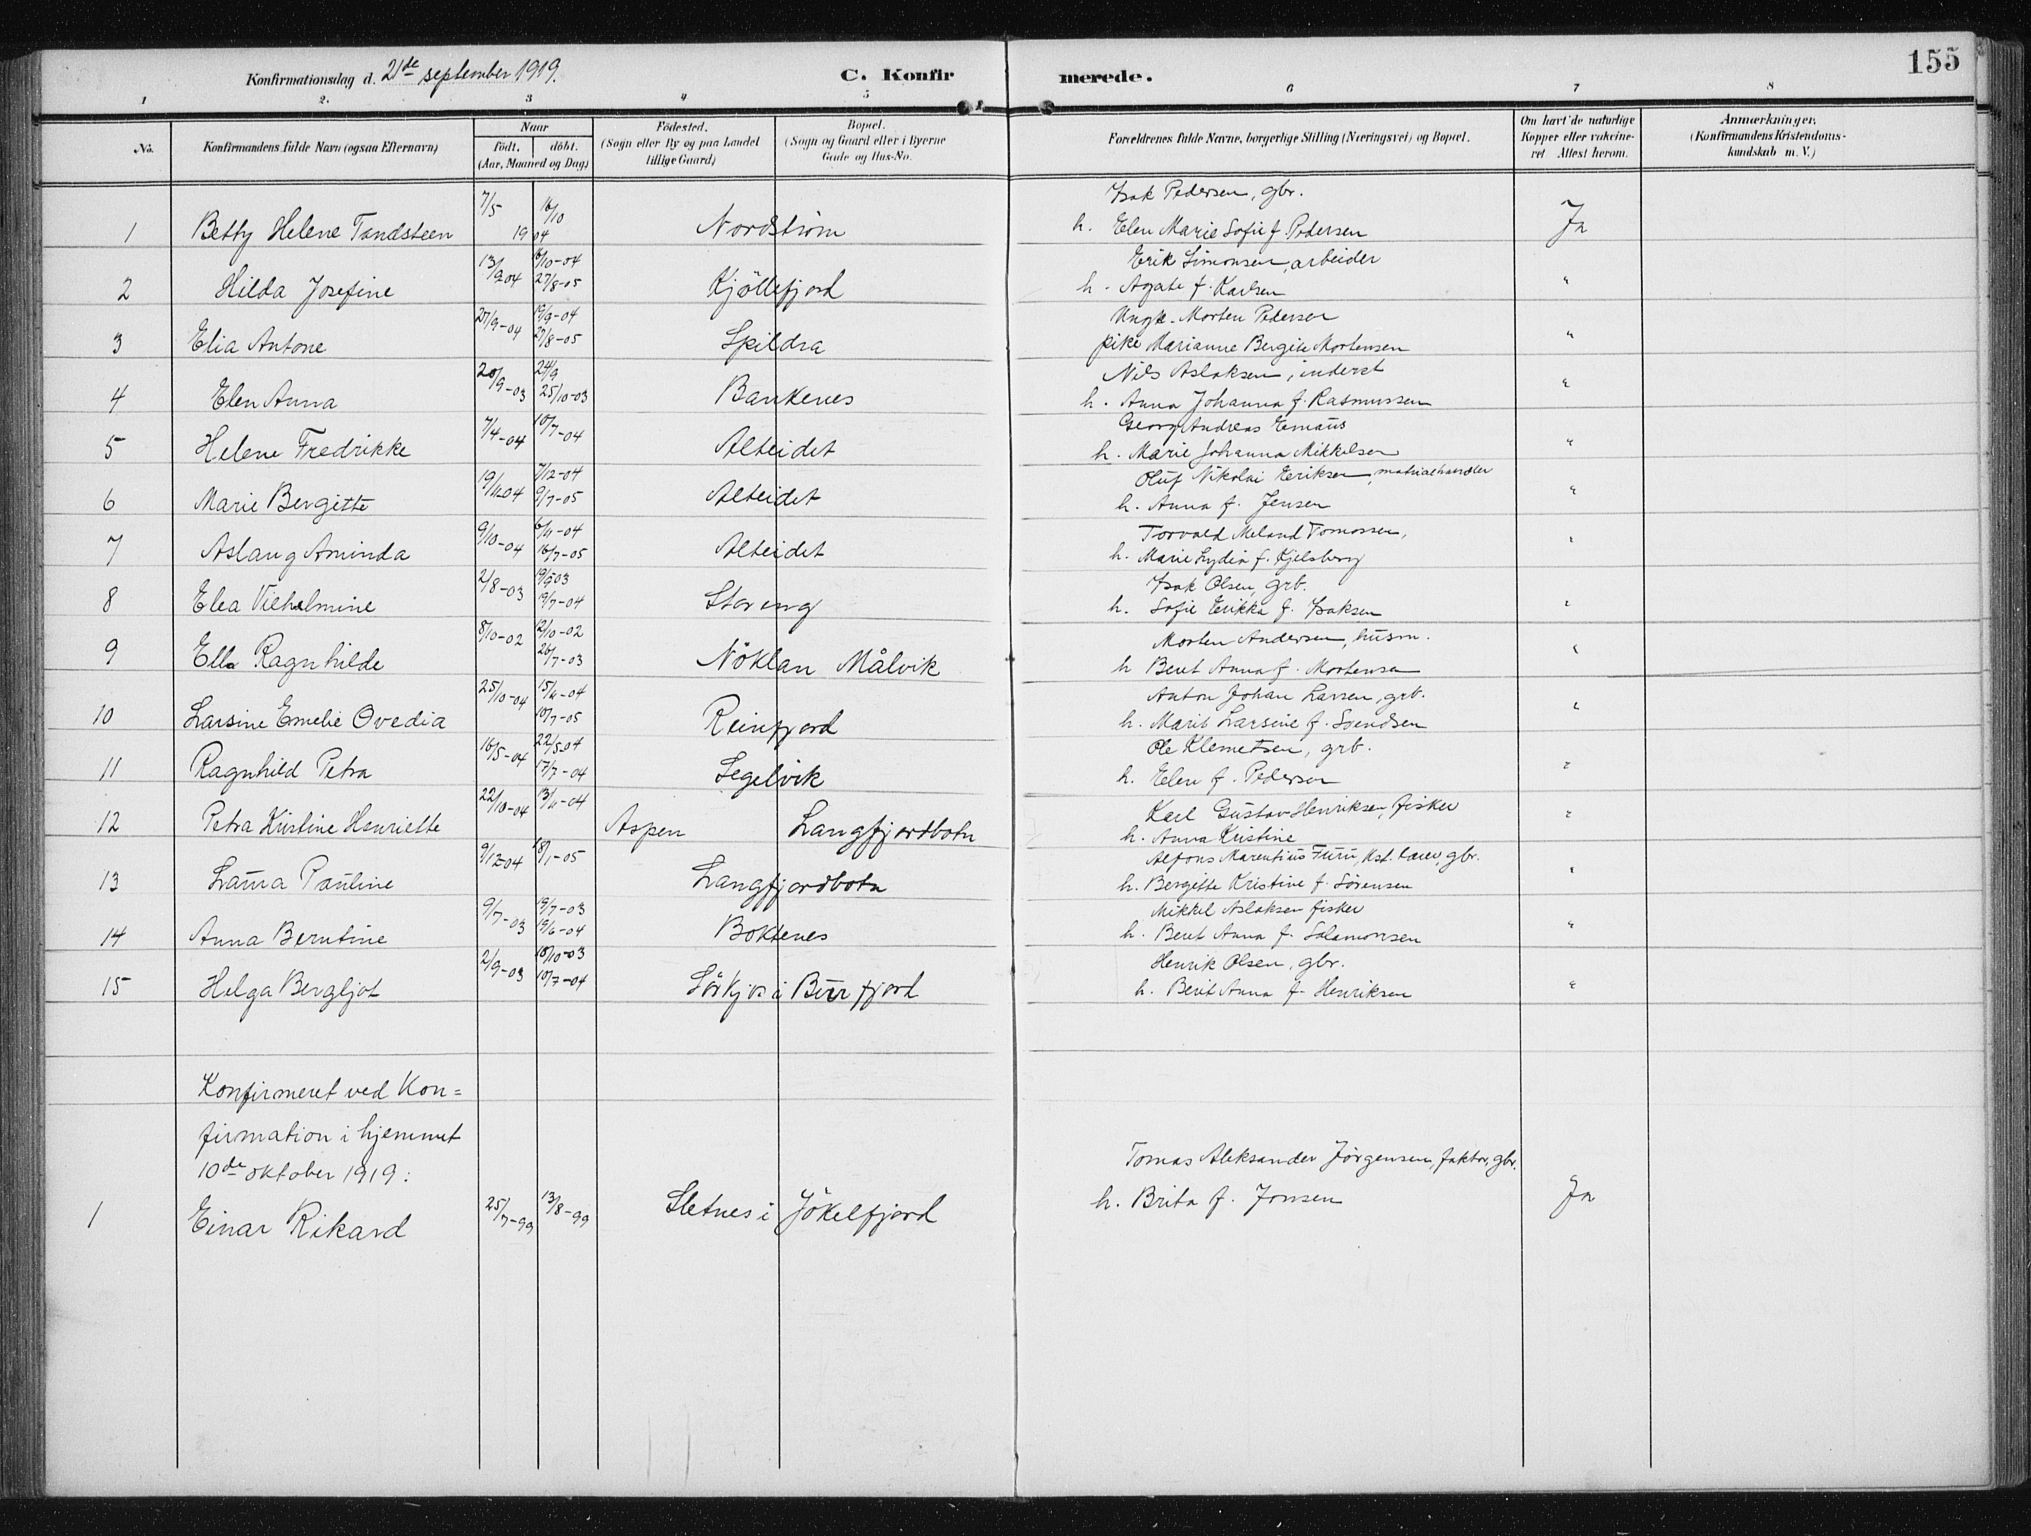 155
Konfirmationsdag d. 21de september 1919.
C. Konfirmerede.
1 2. 3 4 5 6 7 8
No.
Konfirmandens fulde Navn (ogsaa Efternavn)
Naar
födt. döbt.
(Aar, Maaned og Dag)
Födested.
(Sogn eller By og paa Landet
tillige Gaard)
Bopæl.
(Sogn og Gaard eller i Byerne
Gade og Hus-No.
Forældrenes fulde Navne, borgerlige Stilling (Næringsvei) og Bopæl.
Om havt de naturlige
Kopper eller vakcine-
ret Attest herom.
Anmærkninger.
(Konfirmandens Kristendoms-
kundskab m. V.)
Isak Pedersen, gbr.
1 Betty Helene Tandsteen 7/5 19 04 16/10 Nordstrøm h. Elen Marie Sofie f. Pedersen Ja
Erik Simonsen, arbeider
2 Hilda Josefine 13/9 04 16/10-04 27/8-05 Kjöllefjord h. Agate f. Karlsen "
Ungk. Morten Pedersen
3 Elia Antone 27/9-04 27/8-05 Spildra pike Marianne Bergite Mortensen "
Nils Aslaksen, inderst
4 Elen Anna 20/9-03 24/9 25/10-03 Bankenes h. Anna Johanna f. Rasmussen "
Georg Andreas Emaus
5 Helene Fredrikke 7/4-04 10/7-04 Alteidet h. Marie Johanna Mikkelsen "
Oluf Nikolai Eriksen, matrialhandler
6 Marie Bergitte 19/11 04 7/12-04 9/7-05 Alteidet h. Anna f. Jensen "
Torvald Meland Tomassen,
7 Aslaug Aminda 9/10-04 6/11-04 16/7-05 Alteidet h. Marie Lydia f. Kjelsberg "
Isak Olsen, grb.
8 Elea Vilhelmine 2/8-03 19/7-04 Storeng h. Sofie Erikka f. Isaksen "
Morten Andersen, husm.
9 Ella Ragnhilde 8/10-02 12/10-02 26/7-03 Nöklan Målvik h Berit Anna f. Mortensen "
Anton Johan Larsen, grb.
10 Larsine Emelie Ovedia 25/10-04 15/11-04 10/7-05 Reinfjord h. Marit Larsine f. Svendsen "
Ole Klemetsen, grb.
11 Ragnhild Petra 16/5-04 22/5-04 17/7-04 Segelvik h. Elen f. Pedersen "
Karl Gustav Henriksen, fisker
12 Petra Kristine Henriette 22/10-04 13/11-04 Aspen Langfjordbotn h. Anna Kristine "
Alfons Marentius Furu, kst. lærer, gbr.
13 Laura Pauline 9/12-04 8/1-05 Langfjordbotn h. Bergitte Kristine f. Sørensen "
Mikkel Aslaksen fisker
14 Anna Berntine 9/7-03 19/7-03 19/6-04 Boktenes h. Berit Anna f. Salamonsen "
Henrik Olsen, gbr.
15 Helga Bergljot 2/9-03 18/10-03 10/7-04 Sörkjos i Burfjord h. Berit Anna f. Henriksen "
Konfirmeret ved Kon=
firmation i hjemmet
10de oktober 1919:
Tomas Aleksander Jörgensen, faktor, gbr.
1 Einar Rikard 25/7-99 13/8-99 Sletnes i Jökelfjord h. Brita f. Jonsen Ja